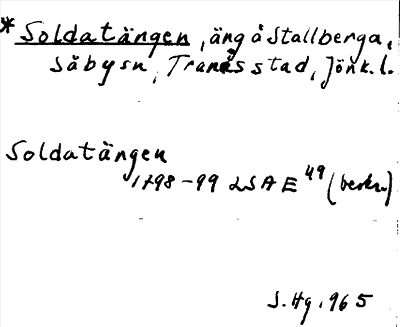 *Soldatängen, äng å Stallberga,
Säbysn, Tranås stad, Jönk.l.
Soldatängen
1798-99 LSA E 49 (beskr.)
J.Hg. 1965